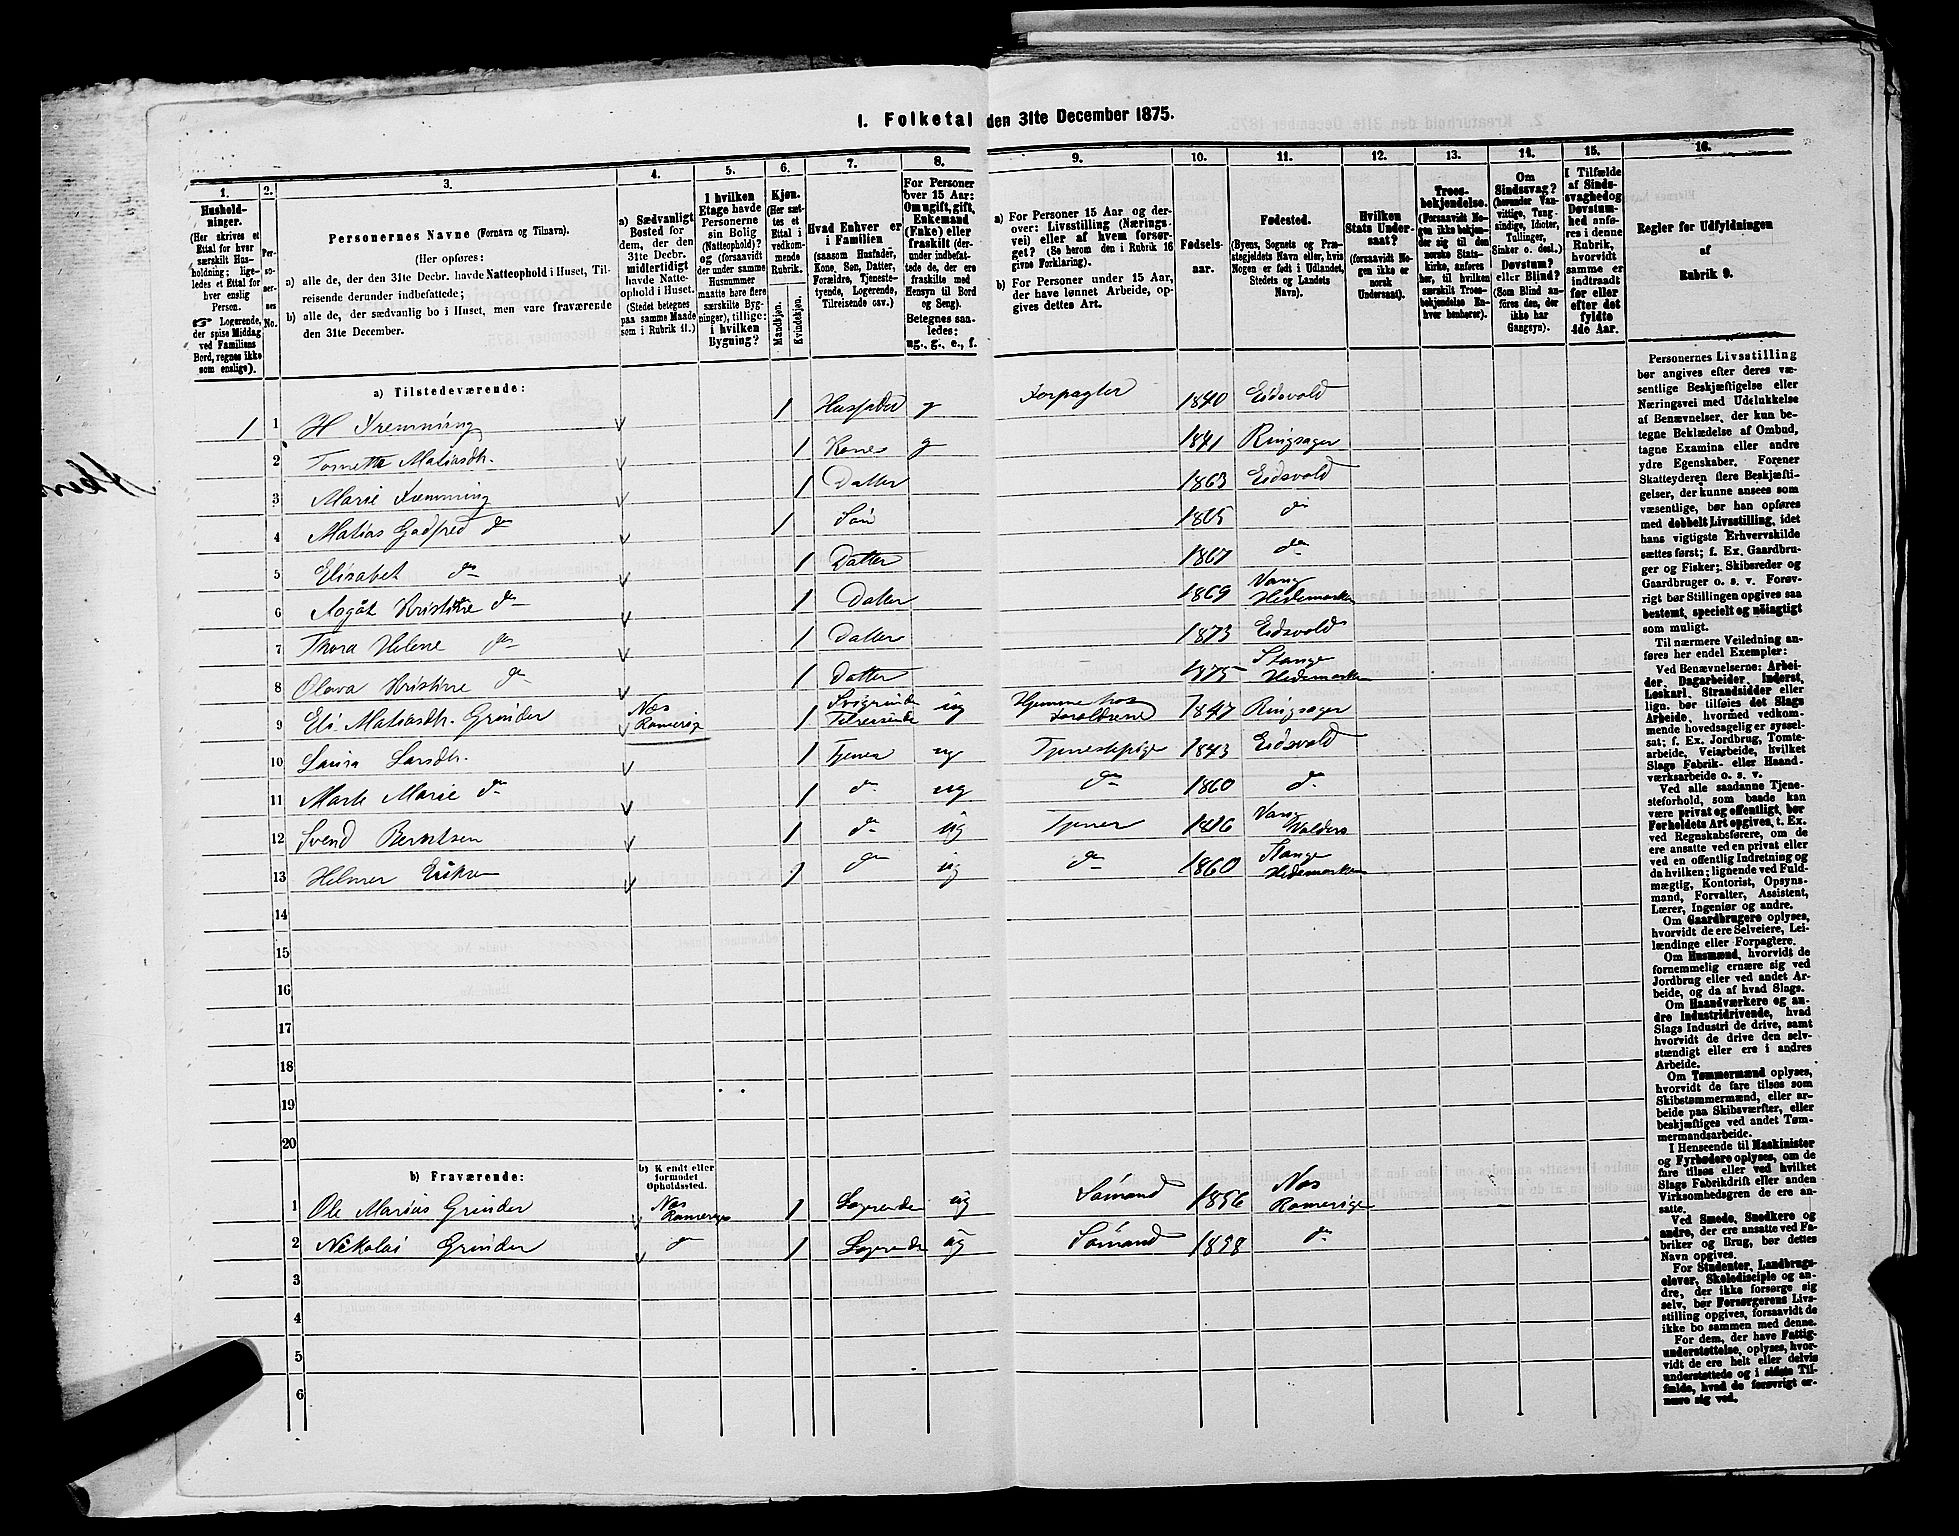 I. Folketal den 31te December 1875.
1. 2. 3. 4. 5. 6. 7. 8. 9. 10. 11. 12. 13. 14. 15. 16.
Hushold-
ninger.
(Her skrives et
Ettal for hver
særskilt Hus-
holdning; lige-
ledes et Ettal for
hver enslig
Person.
☞ Logerende,
der spise Middag
ved Familiens
Bord, regnes ikke
som enslige).
Per-
so-
ner-
nes
No.
Personernes Navne (Fornavn og Tilnavn).
(Her opføres:
a) alle de, der den 31te Decbr. havde Natteophold i Huset, Til-
reisende derunder indbefattede;
b) alle de, der sædvanlig bo i Huset, men vare fraværende
den 31te December.
a) Sædvanligt
Bosted for
dem, der den
31te Decbr.
midlertidigt
havde Natte-
ophold i Huset.
(Stedet betegnes
paa samme Maade
som i Rubrik 11.)
I hvilken
Etage havde
Personerne
sin Bolig
(Natteophold)?
og (forsaavidt
der under samme
Husnummer
maatte høre flere
særskilte Byg-
ninger), tillige:
i hvilken
Bygning?
Kjøn.
(Her sæt-
tes et
Ettal i
vedkom-
mende
Rubrik.
Mandkjøn.
Kvindekjøn.
Hvad Enhver er
i Familien
(saasom Husfader,
Kone, Søn, Datter,
Forældre, Tjeneste-
tyende, Logerende,
Tilreisende osv.)
For Personer
over 15 Aar:
Om ugift, gift,
Enkemand
(Enke) eller
fraskilt (der-
under indbefat-
tede de, der ere
fraskilte med
Hensyn til Bord
og Seng).
Betegnes saa-
ledes:
ug., g., e., f.
a) For Personer 15 Aar og der-
over: Livsstilling (Nærings-
vei) eller af hvem forsør-
get? (Se herom den i Rubrik 16
givne Forklaring).
b) For Personer under 15 Aar,
der have lønnet Arbeide, op-
gives dettes Art.
Fødsels-
aar.
Fødested.
(Byens, Sognets og Præ-
stegjeldets Navn eller, hvis
Nogen er født i Udlandet,
Stedets og Landets
Navn).
Hvilken
Stats Under-
saat?
(forsaavidt No-
gen ikke er
norsk
Undersaat).
Troes-
bekjendelse.
(Forsaavidt No-
gen ikke bekjen-
der sig til den
norske Stats-
kirke, anføres
her, til hvilken
særskilt Troes-
bekjendelse En-
hver henhører).
Om
Sindssvag?
(herunder Van-
vittige, Tung-
sindige, Idioter,
Tullinger,
Sinker o. desl.).
Døvstum?
eller Blind?
(Som Blind an-
føres den, der
ikke har
Gangsyn).
I Tilfælde
af Sinds-
svaghed og
Døvstum-
hed anfø-
res i denne
Rubrik,
hvorvidt
samme er
indtraadt
før eller
efter det
fyldte
4de Aar.
Regler for Udfyldningen
af
Rubrik 9.
a) Tilstedeværende:
1 1 H Fremming 1 Husfader g Forpagter 1840 Eidsvold
2 Tomette Matiasdr. 1 Kone g 1841 Ringsager
3 Marie Fremming 1 Datter 1863 Eidsvold
4 Matias Godfred do 1 Søn 1865 do
5 Elisabet do 1 Datter 1867 do
6 Aagåt Kristine do 1 Datter 1869 Vang Hedemarken
7 Thora Helene do 1 Datter 1873 Eidsvold
8 Olava Kristine do 1 Datter 1875 Stange Hedemarken
9 Eli Matiasdr. Grinder Næs Romerige 1 Svigerinde Tilreisende ug Hjemme hos Forældrene 1847 Ringsager
10 Laura Larsdr. 1 Tjener ug Tjenestepige 1843 Eidsvold
11 Marte Marie do 1 do ug do 1860 do
12 Svend Berntsen 1 do ug Tjener 1816 Vang Valders
13 Helmer Eriksen 1 do ug do 1860 Stange Hedemarken
14
15
16
17
18
19
20
b) Fraværende:
b) Kjendt eller
formodet
Opholdssted.
1 Ole Marius Grinder Næs Romerige 1 Logerende ug Sømand 1856 Næs Romerige
2 Nikolai Grinder do 1 Logerende ug Sømand 1858 do
3
4
5
6
Personernes Livsstilling
bør angives efter deres væ-
sentlige Beskjæftigelse eller
Næringsvei med Udelukkelse
af Benævnelser, der kun be-
tegne Beklædelse af Ombud,
tagne Examina eller andre
ydre Egenskaber. Forener
Skatteyderen flere Beskjæfti-
gelser, der kunne ansees som
væsentlige, bør han opføres
med dobbelt Livsstilling, idet
hans vigtigste Erhvervskilde
sættes først; f. Ex. Gaardbru-
ger og Fisker; Skibsreder og
Gaardbruger o. s. v. Forøv-
rigt bør Stillingen opgives saa
bestemt, specielt og nøiagtigt
som muligt.
Til nærmere Veiledning an-
føres her endel Exempler:
Ved Benævnelserne: Arbei-
der, Dagarbeider, Inderst,
Løskarl, Strandsidder eller
lign. bør tilføies det Slags
Arbeide, hvormed vedkom-
mende hovedsagelig er syssel-
sat; f. Ex. Jordbrug, Tomte-
arbeide, Veiarbeide, hvilket
Slags Fabrik- eller Haand-
værksarbeide o. s. v.
Ved alle saadanne Tjene-
steforhold, som baade kan
være privat og offentligt, bør
Forholdets Art opgives, t. Ex.
ved Regnskabsførere, om de
ere ansatte ved en privat eller
ved en offentlig Indretning og
da hvilken; lignende ved Fuld-
mægtig, Kontorist, Opsyns-
mand, Forvalter, Assistent,
Lærer, Ingeniør og andre.
Om Gaardbrugere oplyses,
hvorvidt de ere Selveiere, Lei-
lændinge eller Forpagtere.
Om Husmænd, hvorvidt de
fornemmelig ernære sig ved
Jordbrug eller ved andet Ar-
beide, og da af hvad Slags.
Om Haandværkere og an-
dre Industridrivende, hvad
Slags Industri de drive, samt
hvorvidt de drive den selv-
stændigt eller ere i andres
Arbeide.
Om Tømmermænd oplyses,
hvorvidt de fare tilsøs som
Skibstømmermænd, eller ar-
beide paa Skibsværfter, eller
beskjæftiges ved andet Tøm-
mermandsarbeide.
I Henseende til Maskinister
og Fyrbødere oplyses, om de
fare tilsøs eller ved hvilket
Slags Fabrikdrift eller anden
Virksomhedsgren de ere an-
satte.
Ved Smede, Snedkere og
andre, der ere ansatte ved Fa-
briker og Brug, bør dettes
Navn opgives.
For Studenter, Landbrugs-
elever, Skoledisciple og an-
dre, der ikke forsørge sig
selv, bør Forsørgerens Livs-
stilling opgives, forsaavidt de
ikke bo sammen med denne.
For dem, der have Fattig-
understøttelse, oplyses, hvor-
vidt de ere helt eller delvis
understøttede og i sidste Til-
fælde, hvad de forøvrigt er-
nære sig ved.